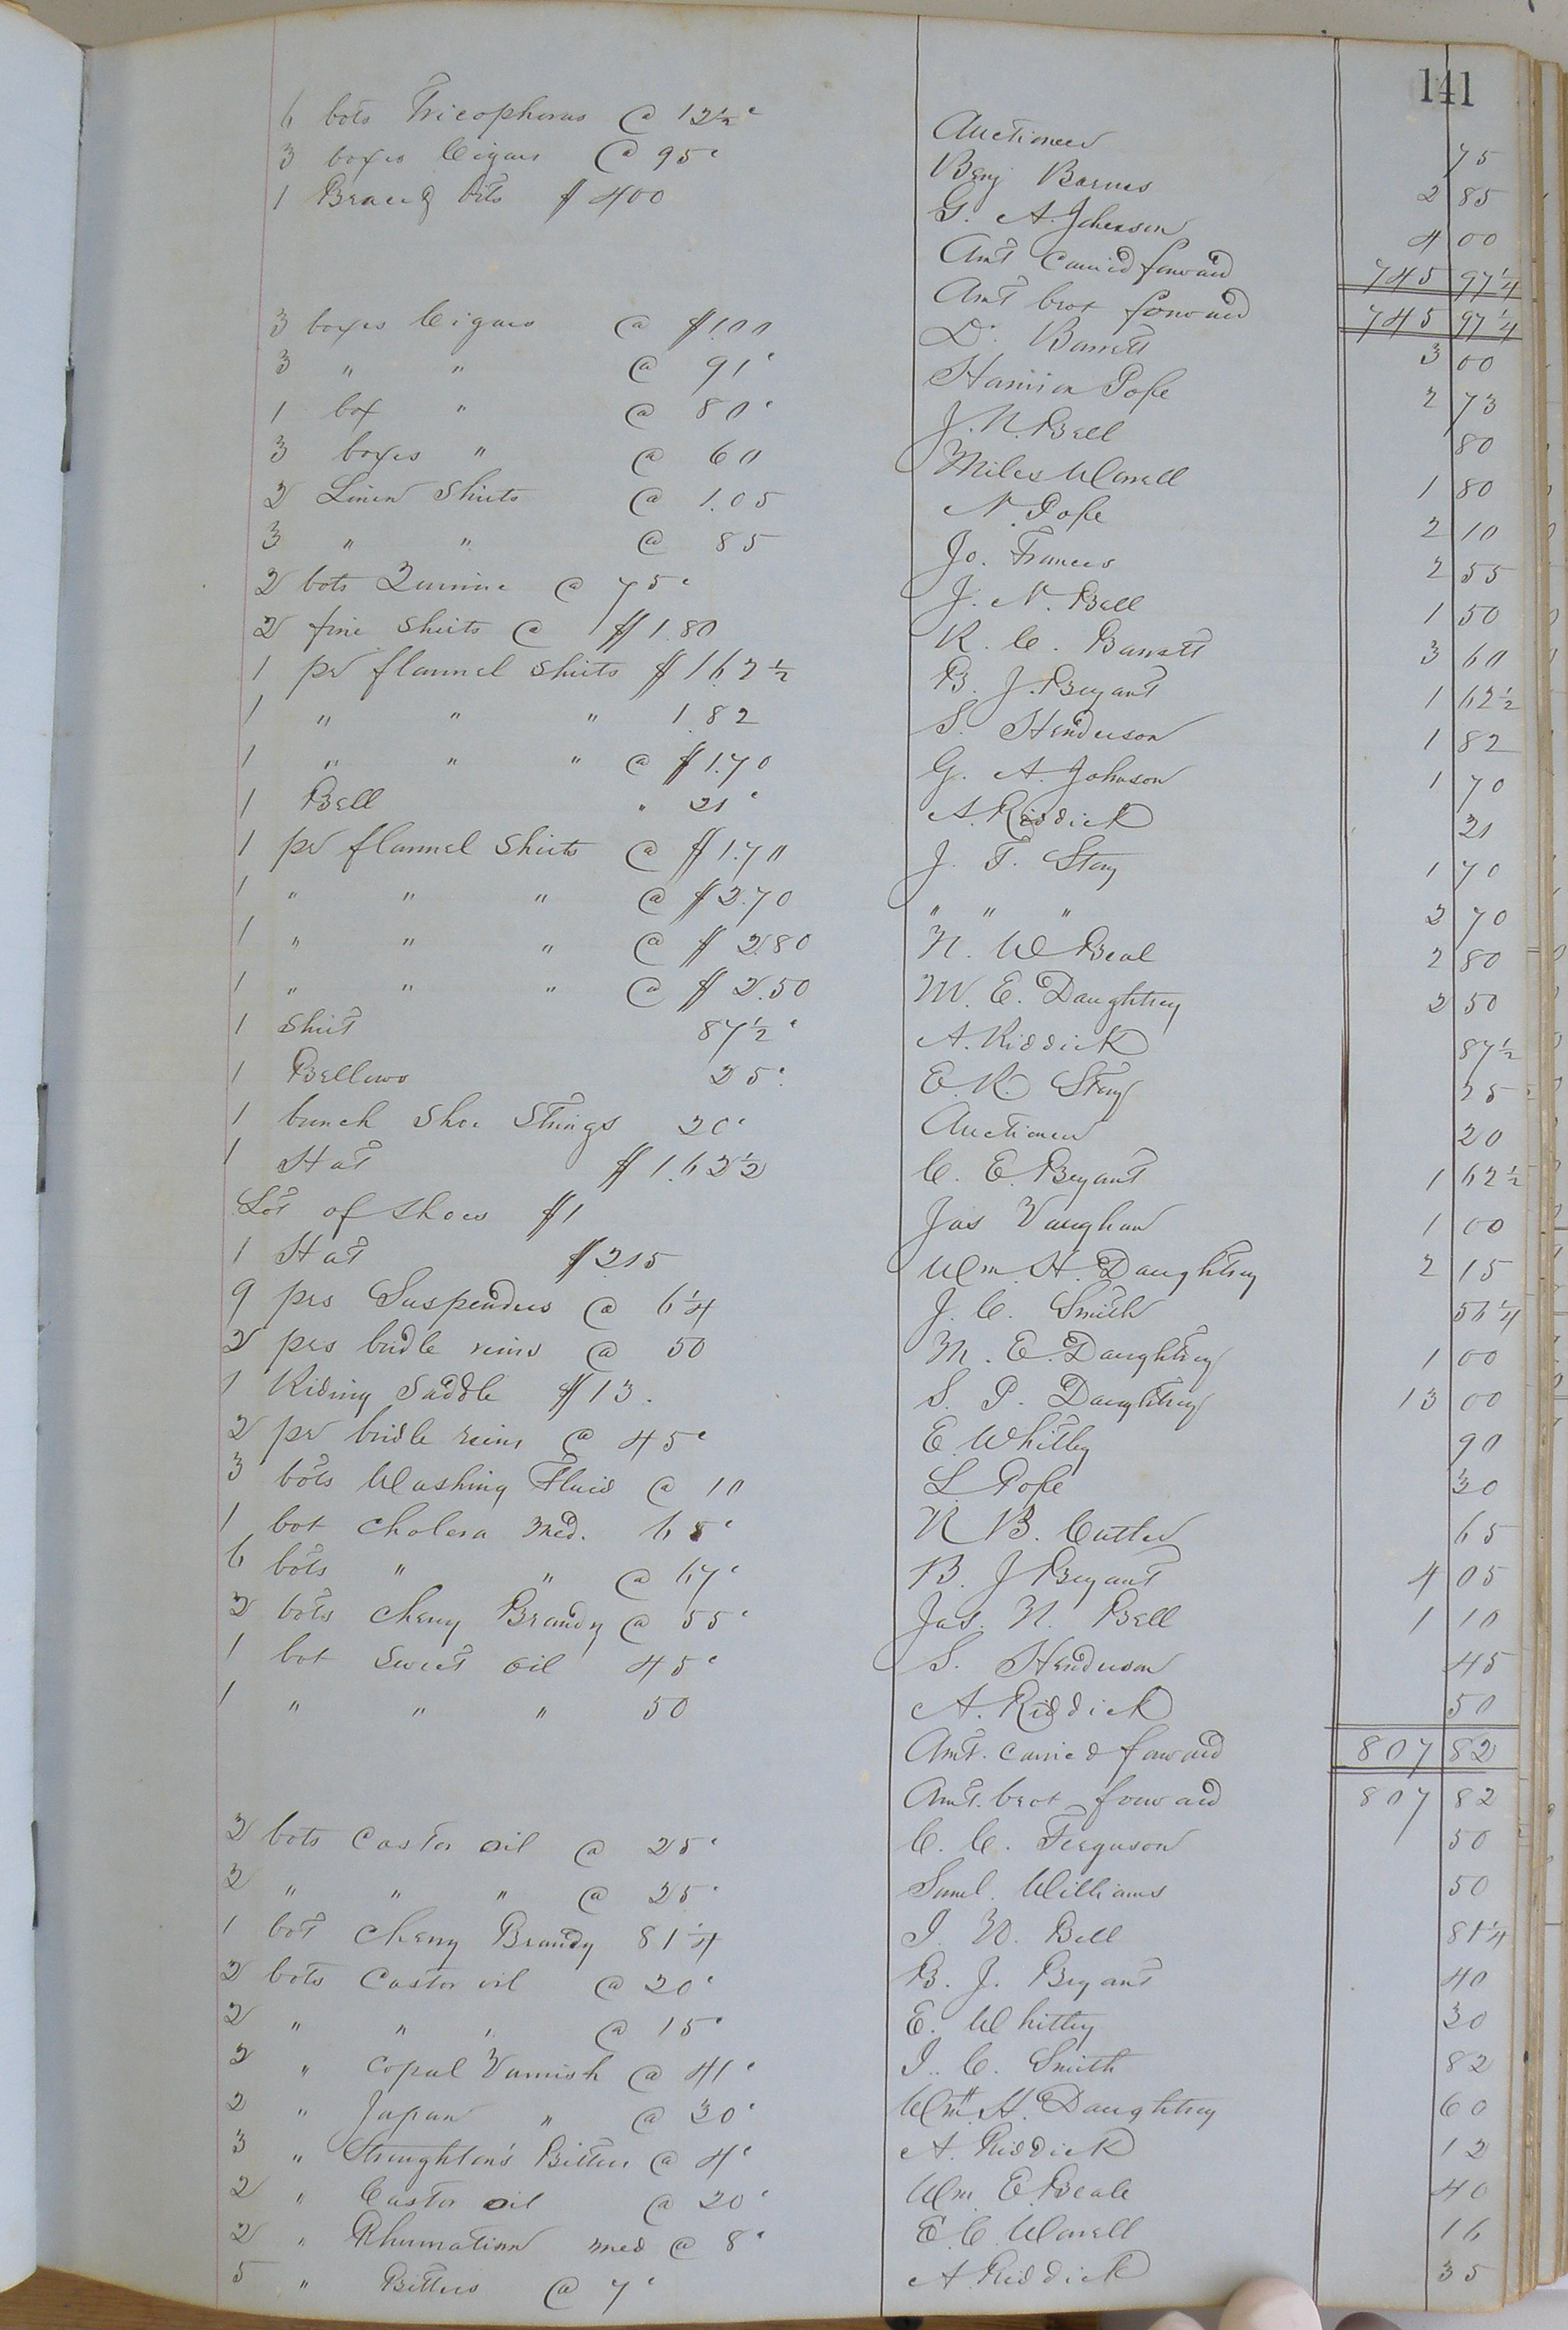 141
6 bots Tricopherus @ 12½ c Auctioneer 75
3 boxes Cigars @ 95 c Benj Barnes 2 85
1 Brace & bits $ 4 00 G. A. Johnson 4 00
Amt Carried forward 745 97¼
Amt brot forward 745 97¼
3 boxes Cigars @ $1.00 D. Barrett 3 00
3 " " @ 91 c Harrison Pope 2 73
1 box " @ 80 c J. N. Bell 80
3 boxes " @ 60 Miles Worrell 1 80
2 Linen Shirts @ 1.05 N. Pope 2 10
3 " " @ 85 Jo. Frances 2 55
2 bots Quinine @ 75 c J. N. Bell 1 50
2 fine Shirts @ $1.80 R. C. Barratt 3 60
1 pr flannel Shirts $1.62½ B. J. Bryant 1 62½
1 " " " 1.82 S. Henderson 1 82
1 " " " @ $1.70 G. A. Johnson 1 70
1 Bell " 21 c A. Riddick 21
1 pr flannel Shirts @ $1.70 J. T. Story 1 70
1 " " " @ $2.70 " " " 2 70
1 " " " @ $2.80 N. W Beal 2 80
1 " " " @ $2.50 M. E. Daughtrey 2 50
1 Shirt 87½ c A. Riddick 87½
1 Bellows 25 c E. R. Story 25
1 bunch Shoe Strings 20 c Auctioneer 20
1 Hat $1.62½ C. E. Bryant 1 62½
Lot of Shoes $1 Jas Vaughan 1 00
1 Hat $2.15 Wm. H. Daughtrey 2 15
9 prs Suspenders @ 6¼ J. C. Smith 56¼
2 prs bridle reins @ 50 M. E. Daughtrey 1 00
1 Riding Saddle $13. S. P. Daughtrey 13 00
2 pr bridle reins @ 45 c E. Whitley 90
3 bots Washing Fluid @ 10 L Pope 30
1 bot Cholera Med. 65 c N B. Cutler 65
6 bots " " @ 67 c B. J Bryant 4 05
2 bots Cherry Brandy @ 55 c Jas. N. Bell 1 10
1 bot Sweet Oil 45 c S. Henderson 45
1 " " " 50 A. Riddick 50
Amt. carried forward 807 82
Amt. brot forward 807 82
2 bots Castor Oil @ 25 c C. C. Ferguson 50
2 " " " @ 25 c Saml. Williams 50
1 bot Cherry Brandy 81¼ J. N. Bell 81¼
2 bots Castor oil @ 20 c B. J. Bryant 40
2 " " " @ 15 c E. Whitley 30
2 " Copal Varnish @ 41 c J. C. Smith 82
2 " Japan " @ 30 c Wm H. Daughtrey 60
3 " Stoughton's Bitters @ 4 c A. Riddick 12
2 " Castor Oil @ 20 c Wm. E. Beale 40
2 " Rhumatism med @ 8 c E. C. Worrell 16
5 " Bitters @ 7 c A Riddick 35